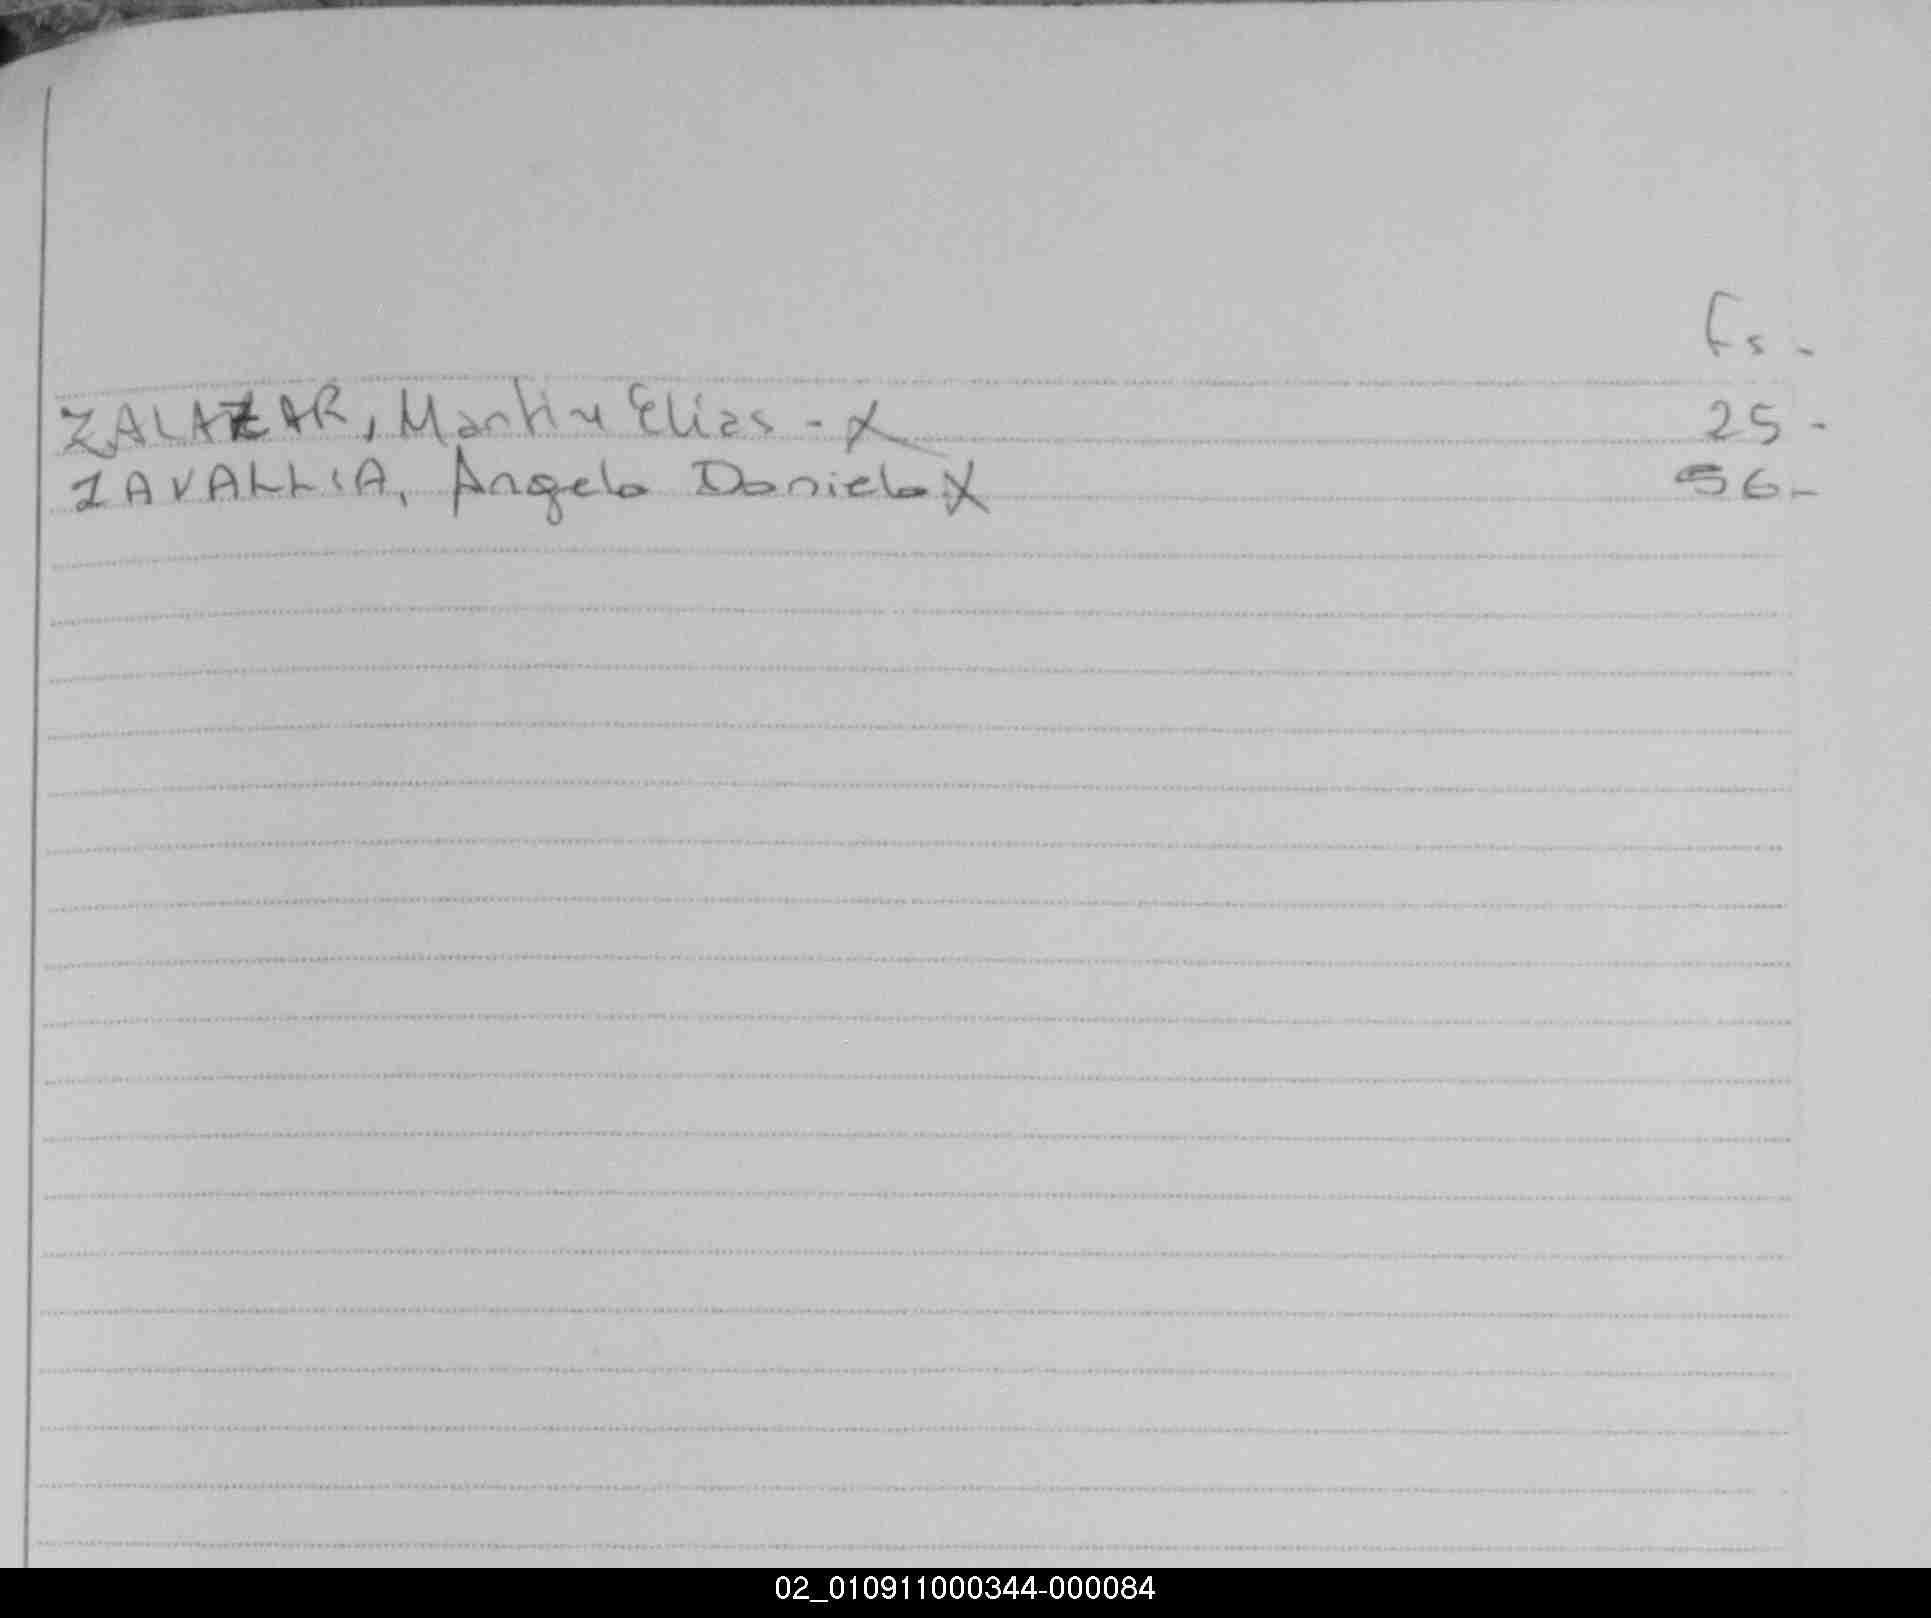 Fs.-
ZALAZAR, Martin Elias - X 25-
ZAVALLIA, Angela Daniela X 56-
02_010911000344-000084